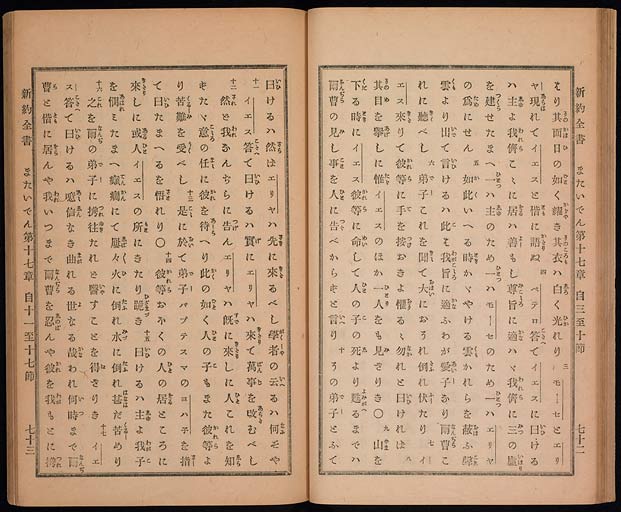 新約全書 またいでん第十七章 自三至十節 七十二
より其面目の如く耀き其衣ハ白く光れり 三 モーセとエリ
ヤ現れてイエスと偕に語ぬ 四 ペテロ答てイエスに曰ける
ハ主よ我儕こゝに居ハ善もし尊旨に適ハゞ我儕に三の廬
を建せたまへ一ハ主のため一ハモーセのため一ハエリヤ
の爲にせん 五 如此いへる時かゞやける雲かれらを蔽ふ聲
雲より出て言けるハ此ハ我旨に適ふわが愛子なり爾曹こ
れに聽べし 六 弟子これを聞て大におそれ倒れ伏たり 七 イ
エス來りて彼等に手を按おきよ懼るゝ勿れと曰ければ 八
其目を擧しに惟イエスのほか一人をも見ざりき〇 九 山を
下る時にイエス彼等に命じて人の子の死より甦るまでハ
爾曹の見し事を人に告べからずと言り 十 その弟子とふて
曰けるハ然ばエリヤハ先に來るべしと學者の云るハ何ぞや
十一 イエス答て曰けるハ實にエリヤハ來て萬事を改むべし
十二 然ど我なんぢらに告んエリヤハ既に來しに人これを知
ずたゞ意の任に彼を待へり此の如く人の子もまた彼等よ
り苦難を受べし 十三 是に於て弟子バプテスマのヨハ子を指
て曰たまへるを悟れり〇 十四 彼等おほくの人の居ところに
來しに或人イエスの所にきたり跪き 十五 曰けるハ主よ我子
を憫みたまへ癲癇にて屢々火に倒れ水に倒れ甚だ苦めり
十六 之を爾の弟子に携往たれど醫すことを得ざりき 十七 イエ
ス答て曰けるハ噫信なき曲れる世なる哉われ何時まで爾
曹と偕に居んや我いつまで爾曹を忍んや彼を我もとに携
新約全書 またいでん第十七章 自十一至十七節 七十三